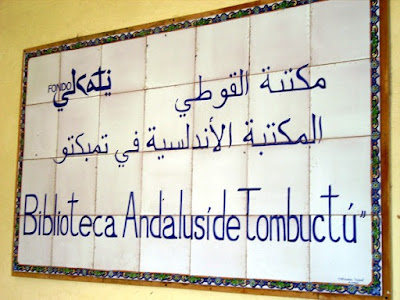 FONDO كعتي
مكتبة القوطي
المكتبة الأندلسية في تمبكتو
Biblioteca Andalusí de Tombuctú"